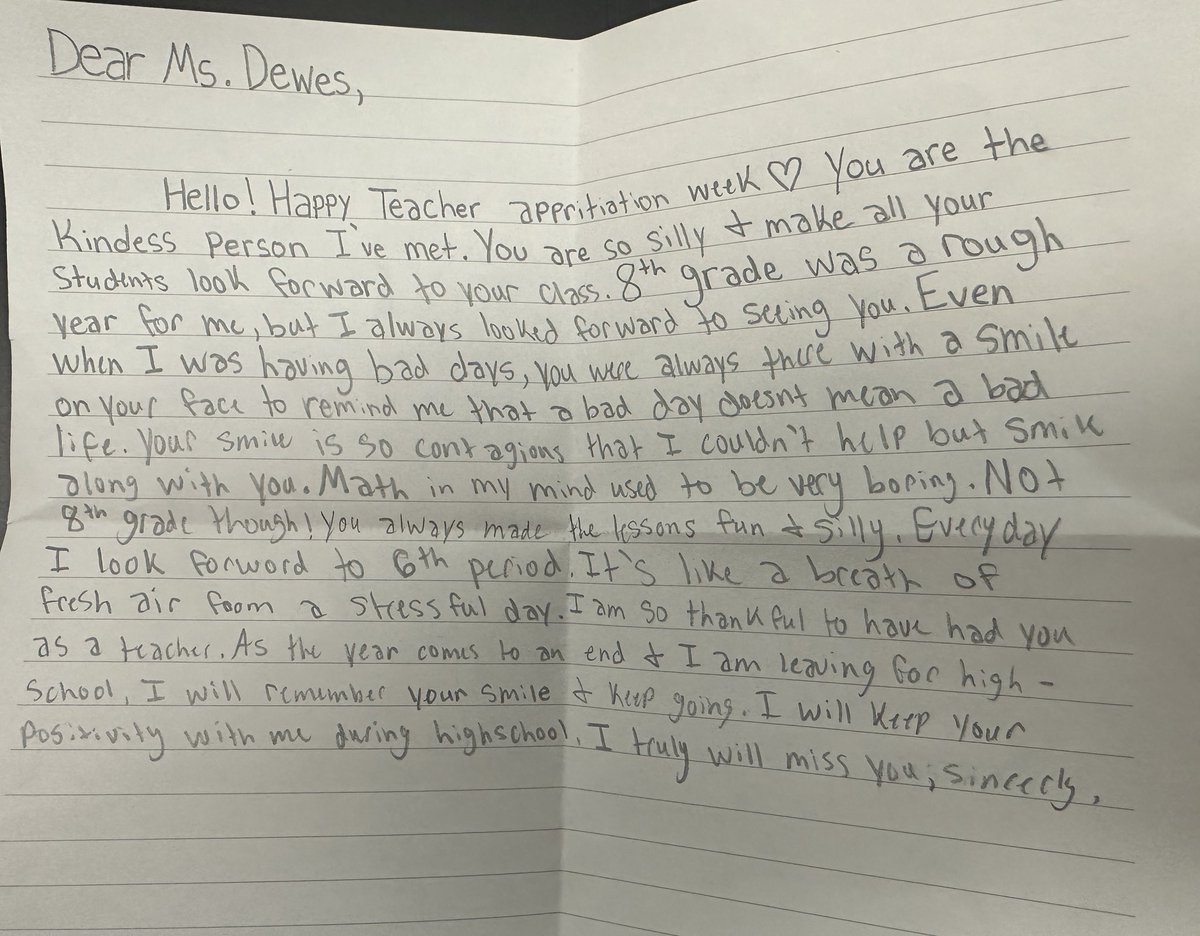 Dear Ms. Dewes,
Hello! Happy Teacher appritiation week ♡ You are the
Kindess person I've met. You are so silly & make all your
Students look forward to your class. 8th grade was a rough
year for me, but I always looked forward to seeing you. Even
when I was having bad days, you were always there with a smile
on your face to remind me that a bad day doesnt mean a bad
life. Your smile is so contagious that I couldn't help but smile
along with you. Math in my mind used to be very boring. Not
8th grade though! You always made the lessons fun & silly. Everyday
I look forward to 6th period. It's like a breath of
fresh air from a stressful day. I am so thankful to have had you
as a teacher. As the year comes to an end & I am leaving for high-
School, I will remember your smile & keep going. I will keep your
Positivity with me during highschool. I truly will miss you, sincerely,